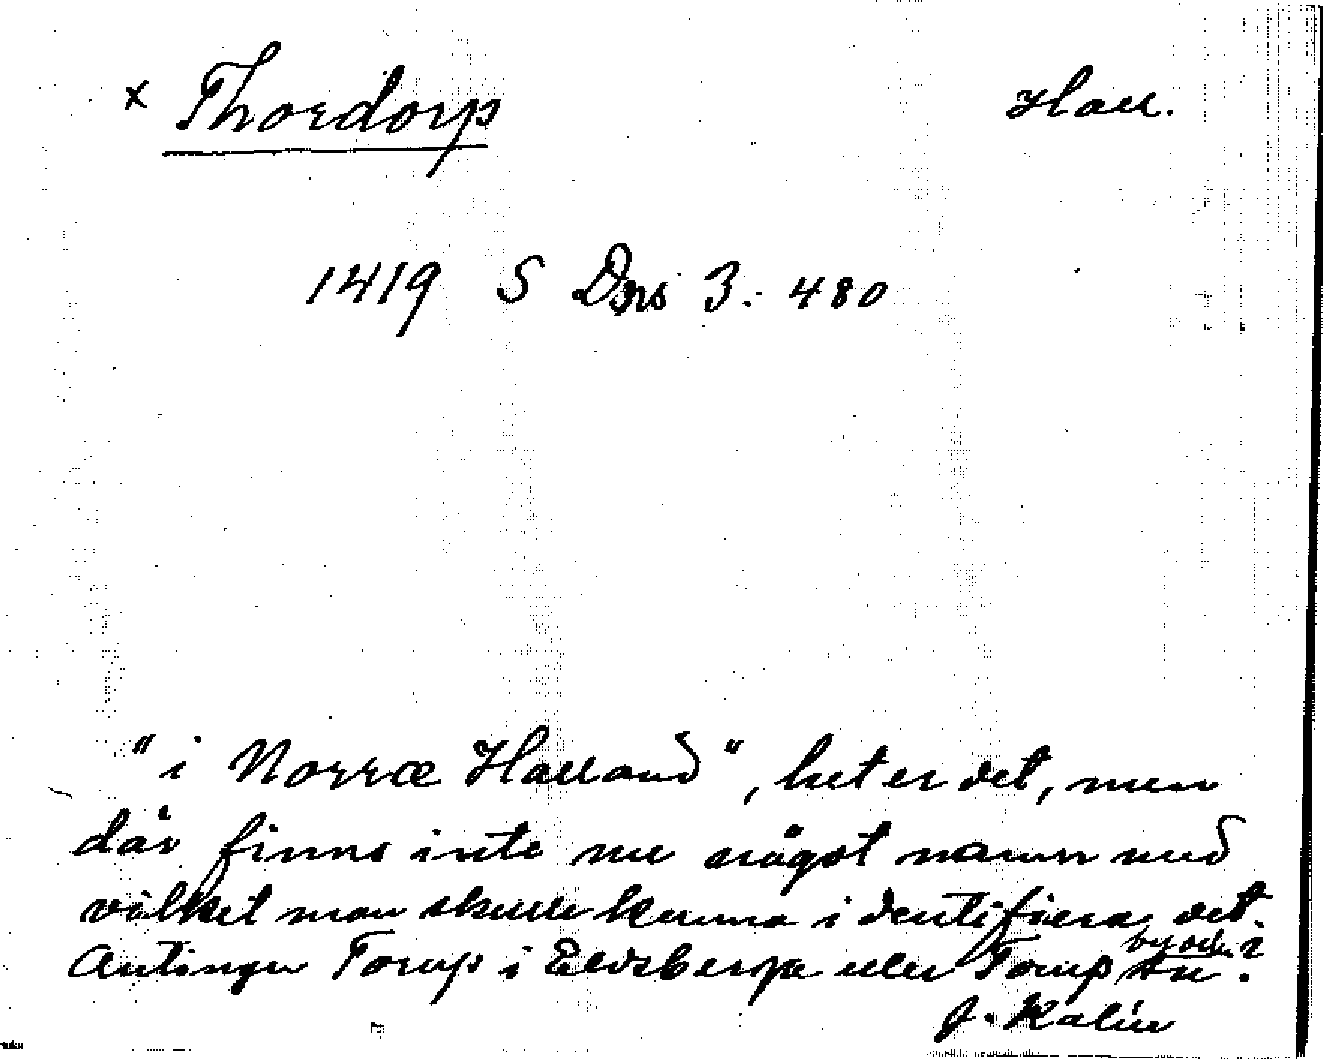 x Thordorp Hall.
1419 S Dns 3. 480
"i Norræ Halland", heter det, men
där finns inte nu något namn med
vilket man skulle kunna identifiera det.
Antingen Torup i Eldsberga eller Torup sn?
J. Kalén